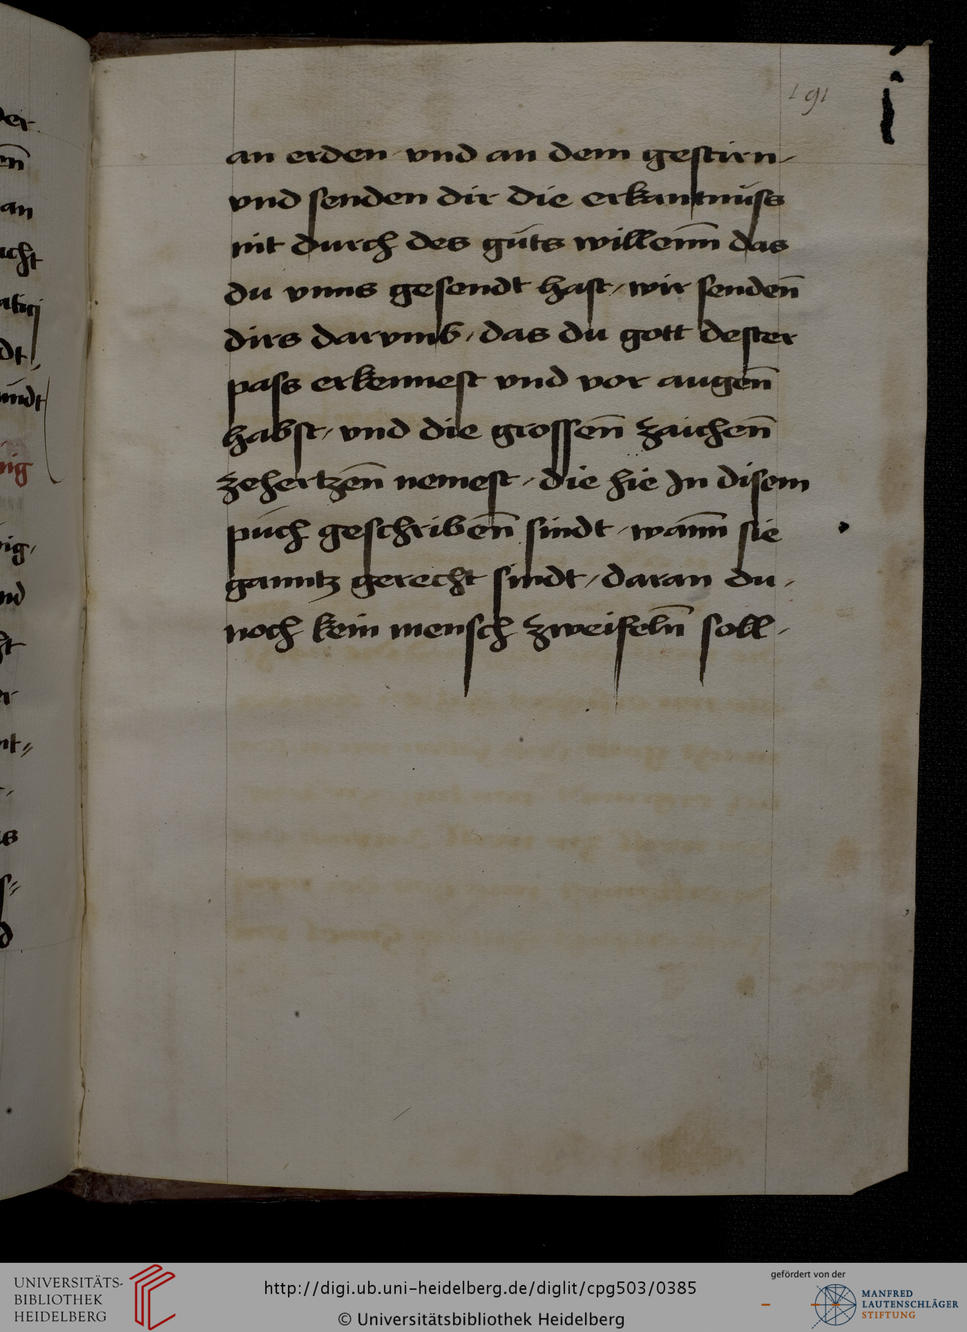 191
an erden vnd an dem gestirn
vnd senden dir die erkantnüss
nit durch des güts willenn̄ das
du vnns gesendt hast / wir senden̄
dirs darvmb / das du gott dester
pass erkennest vnd vor augen̄
habst / vnd die grossen̄ zaichen̄
zehertzen̄ nemest / die hie In disem
püch geschriben̄ sindt / wann̄ sie
ganntz gerecht sindt / daran du
noch kein mensch zweifeln̄ soll
UNIVERSITÄTS-
BIBLIOTHEK
HEIDELBERG
http://digi.ub.uni-heidelberg.de/diglit/cpg503/0385
© Universitätsbibliothek Heidelberg
gefördert von der
MANFRED
LAUTENSCHLÄGER
STIFTUNG